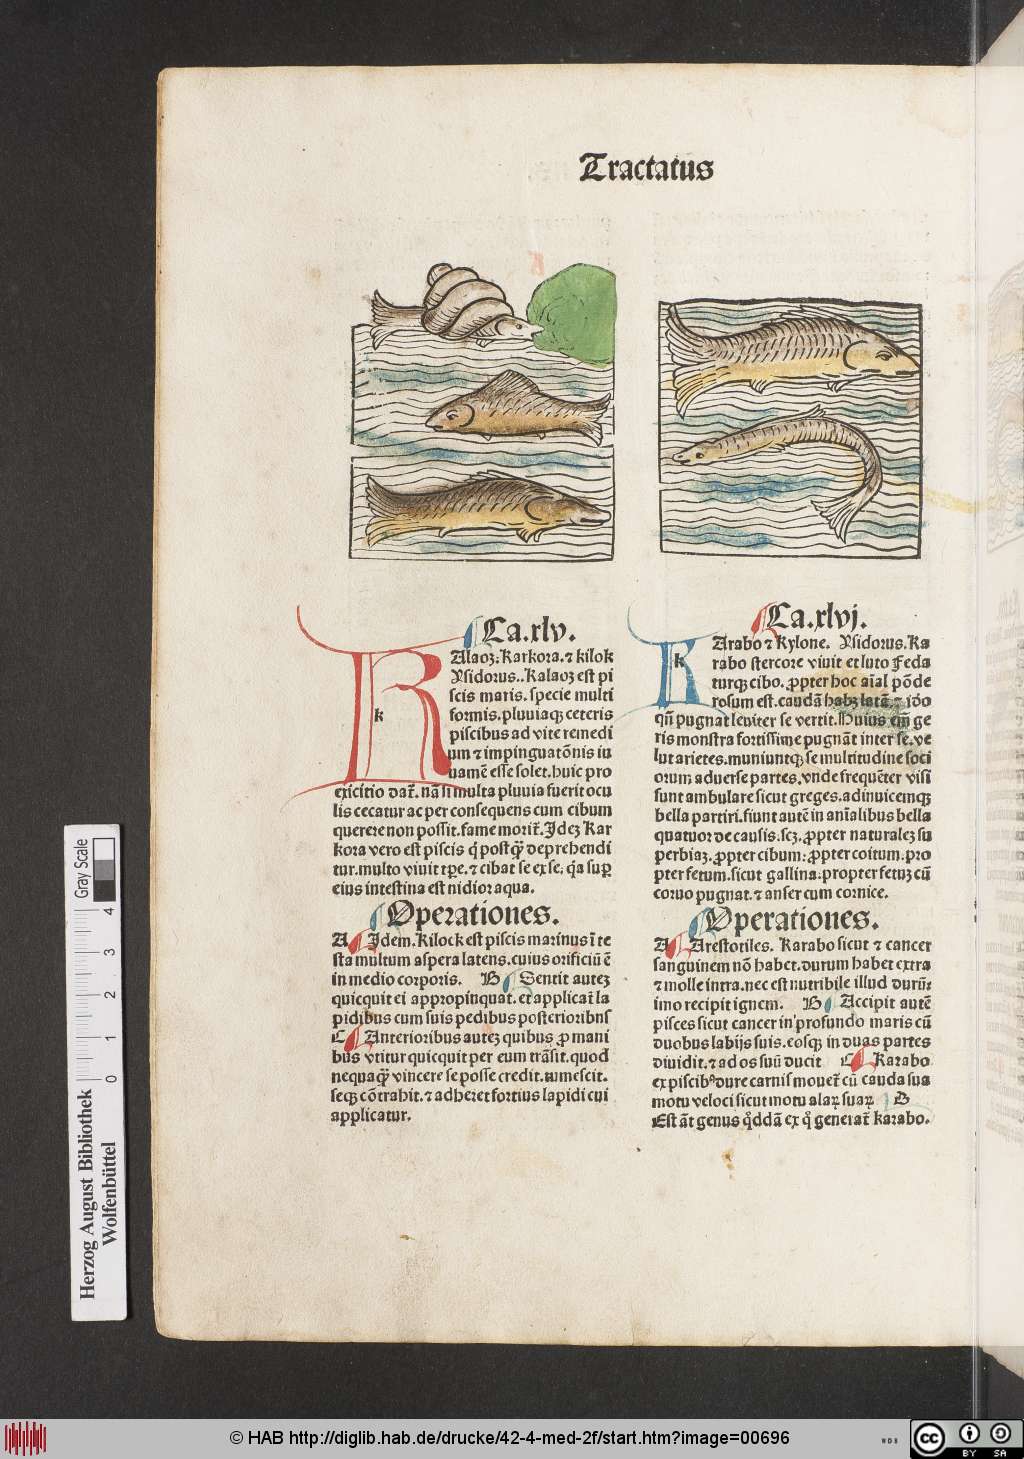 Tractatus
Ca.xlv.
k
Alaoz. Karkora. ⁊ kilok
Ysidorus.. Kalaoz est pi
scis maris. specie multi
formis. pluuiaqꝫ ceteris
piscibus ad vite remedi
um ⁊ impinguatōnis iu
uamē esse solet. huic pro
exicitio dat̄. nā si multa pluuia fuerit ocu
lis cecatur ac per consequens cum cibum
querere non possit. fame morit̄. Idez Kar
kora vero est piscis q̄ postq̄ȝ deprehendi
tur. multo viuit tp̄e. ⁊ cibat se ex se. qa sup̄
eius intestina est nidior aqua.
Operationes.
A Idem. Kilock est piscis marinus ī te
sta multum aspera latens. cuius orificiū ē
in medio corporis. B Sentit autez
quicquit ei appropinquat. et applicat la
pidibus cum suis pedibus posterioribns
C Anterioribus autez quibus ꝓ mani
bus vtitur quicquit per eum trāsit. quod
nequaq̄ȝ vincere se posse credit. tumescit.
seqꝫ cōtrahit. ⁊ adheret fortius lapidi cui
applicatur.
Ca.xlvj.
k
Arabo ⁊ Kylone. Ysidorus. Ka
rabo stercore viuit et luto feda
turqꝫ cibo. ꝓpter hoc aīal pōde
rosum est. caudā habꝫ latā. ⁊ iō
qn̄ pugnat leuiter se vertit. Huius em̄ ge
ris monstra fortissime pugnāt inter se. ve
lut arietes. muniuntqꝫ se multitudine soci
orum aduerse partes. vnde frequēter visi
sunt ambulare sicut greges. adinuicemqꝫ
bella partiri. fiunt autē in an̄ialibus bella
quatuor de causis. scꝫ. ꝓpter naturalez su
perbiaz. ꝓpter cibum: ꝓpter coitum. pro
pter fetum. sicut gallina: propter fetuz cū
coruo pugnat. ⁊ anser cum cornice.
Operationes.
A Arestotiles. Karabo sicut ⁊ cancer
sanguinem nō habet. durum habet extra
⁊ molle intra. nec est nutribile illud durū:
imo recipit ignem. B Accipit autē
pisces sicut cancer in profundo maris cū
duobus labijs suis. eosqꝫ in duas partes
diuidit. ⁊ ad os suū ducit C Karabo
ex piscibꝰ dure carnis mouet̄ cū cauda sua
motu veloci sicut motu alaꝝ suaꝝ B
Est āt genus q̄ddā ex q̊ generat̄ karabo.
Gray Scale
0 1 2 3 4
Herzog August Bibliothek
Wolfenbüttel
© HAB http://diglib.hab.de/drucke/42-4-med-2f/start.htm?image=00696
WDB
cc BY SA